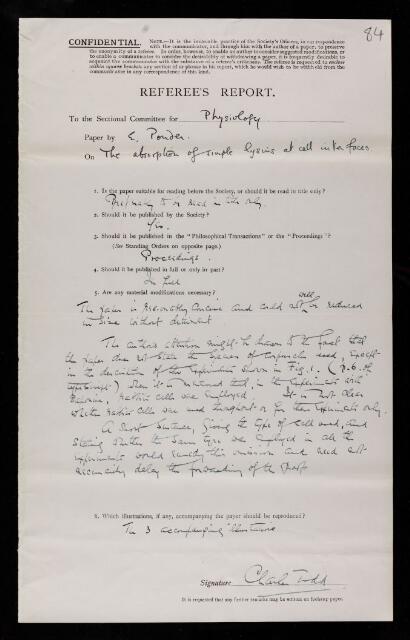 84
CONFIDENTIAL.
NOTE.—It is the invariable practice of the Society's Officers, in any correspondence
with the communicator, and through him with the author of a paper, to preserve
the anonymity of a referee. In order, however, to enable an author to consider suggested modifications, or
to enable a communicator to consider the desirability of withdrawing a paper, it is frequently desirable to
acquaint the communicator with the substance of a referee's criticisms. The referee is requested to enclose
within square brackets any section of or phrase in his report, which he would wish to be withheld from the
communicator in any correspondence of this kind.
REFEREE'S REPORT.
To the Sectional Committee for Physiology
Paper by E. Ponder.
On The absorption of simple lysins at cell interfaces
1. Is the paper suitable for reading before the Society, or should it be read in title only?
read in title only.
2. Should it be published by the Society?
Yes.
3. Should it be published in the "Philosophical Transactions" or the "Proceedings"?
(See Standing Orders on opposite page.)
Proceedings.
4. Should it be published in full or only in part?
In full
5. Are any material modifications necessary?
The paper is reasonably concise and could not well be reduced
in size without detriment.
The author's attention might be drawn to the fact that
the paper does not state the of corpuscles used, except
in the description of the experiment shown in Fig. 1. (p. 6. of
) when it is mentioned that, in the experiments with
, cells were employed. It is not clear
whether cells were used throughout or for these experiments only.
A short sentence, giving the type of cell used, and
stating whether the same type was employed in all the
experiments would remedy this omission and need not
delay the forwarding of the
6. Which illustrations, if any, accompanying the paper should be reproduced?
The 3 accompanying illustrations
Signature Charles Todd
It is requested that any further remarks may be written on foolscap paper.